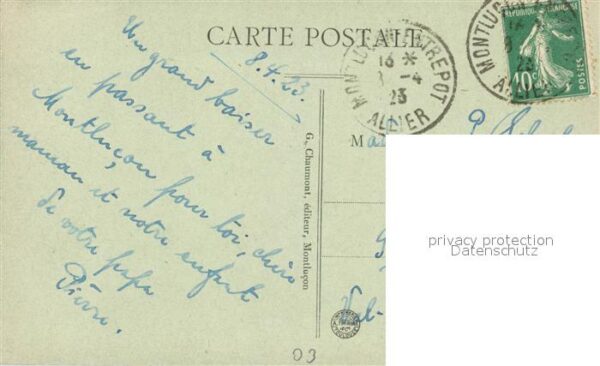 CARTE POSTALE
8.4.23.
Un grand baiser
en passant à
Montluçon pour toi, chère
maman et notre enfant
de votre papa
Pierre.
G. Chaumont, éditeur, Montluçon
MONTLUÇON ENTREPOT
13 *
8 -4
23
ALLIER
MONTLUÇON
23
ALLIER
REPUBLIQUE FRANÇAISE
10c
POSTES
privacy protection
Datenschutz
03